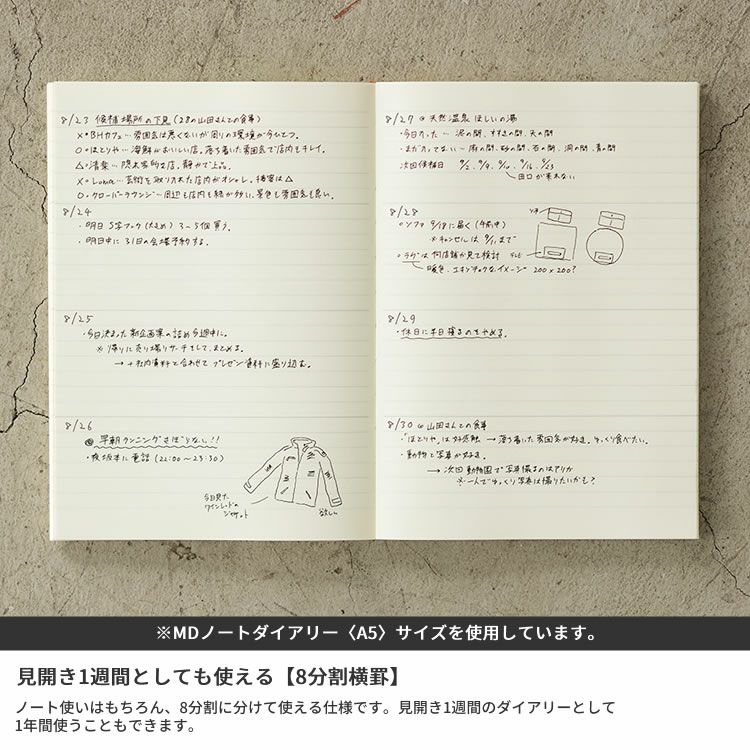 8/23 候補場所の下見(28の山田さんとの食事)
×・BHカフェ…雰囲気は悪くないが周りの環境が今ひとつ。
○・ほとりや…海鮮がおいしい店。落ち着いた雰囲気で店内もキレイ。
△・清楽…隠れ家的な店。静かで上品。
×・Luna…芸術を取り入れた店内がオシャレ。接客は△
○・クローバーラウンジ…周辺も店内も緑が多い。景色も雰囲気も良い。
8/24
・明日 S字フック(大きめ) 3〜5個買う。
・明日中に31日の会場予約する。
8/25
・今日決まった新企画案の詰め今週中に。
※帰りに売り場リサーチをして、まとめる。
→+社内資料と合わせて プレゼン資料に盛り込む。
8/26
早朝ランニングさぼらない!!
・夜坂本に電話(22:00〜23:30)
今日見た
ワインレッドの
ジャケット
欲しい
8/27 @ 天然温泉 ほしいの湯
・今日入った… 泥の間、すすきの間、天の間
・まだ入ってない… 雨の間、砂の間、石の間、洞の間、青の間
次回候補日 9/2、9/9、9/10、9/16、9/23
田口が来れない
8/28
○ソファ 9/18に届く(午前中)
※キャンセルは 9/11まで
・ラグは何店舗か見て検討
暖色、エキゾチックなイメージ 200×200?
ソファ
テレビ
8/29
・休日に半日寝るのをやめる。
8/30 @ 山田さんとの食事
・「ほとりや」は好感触 → 落ち着いた雰囲気が好き。ゆっくり食べたい。
・動物と写真が好き。
→ 次回 動物園で写真撮るのはアリか
※一人でゆっくり写真は撮りたいかも?
※MDノートダイアリー〈A5〉サイズを使用しています。
見開き1週間としても使える【8分割横罫】
ノート使いはもちろん、8分割に分けて使える仕様です。見開き1週間のダイアリーとして
1年間使うこともできます。